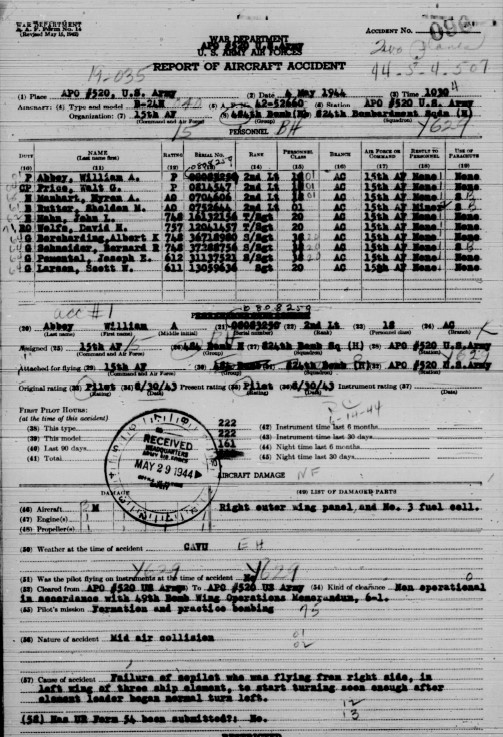 WAR DEPARTMENT
A. A. F. Form No. 14
(Revised May 15, 1942)
ACCIDENT No.
WAR DEPARTMENT
APO #520 U.S. Army
U. S. ARMY AIR FORCES
REPORT OF AIRCRAFT ACCIDENT
44-5-4-507
(1) Place APO #520, U.S. Army (2) Date 4 May 1944 (3) Time 1030
AIRCRAFT: (4) Type and model B-24H (5) A. F. No. 42-52660 (6) Station APO #520 U.S. Army
Organization: (7) 15th AF (8) 484th Bomb (H) 824th Bombardment Sqdn (H)
(Command and Air Force) (Group) (Squadron)
15 BH Y629
PERSONNEL
DUTY NAME (Last name first) RATING SERIAL No. RANK PERSONNEL CLASS BRANCH AIR FORCE OR COMMAND RESULT TO PERSONNEL USE OF PARACHUTE
(10) (11) (12) (13) (14) (15) (16) (17) (18) (19)
P Abbey, William A. P 2nd Lt 18 AC 15th AF None None
CP Price, Walt G. P 2nd Lt 18 AC 15th AF None None
Manhart, Myron A. AO 0704606 2nd Lt AC 15th AF None
B Dutter, Sheldon M. AO 2nd Lt 01 AC 15th AF None
Hahn, John L. 748 16132156 T/Sgt 20 AC 15th AF None None
RO Wolfe, David H. 757 12041437 T/Sgt 20 AC 15th AF None None
G Bernharding, Albert E 748 36718980 S/Sgt AC 15th AF None None
G Schneider, Bernard R 748 S/Sgt AC 15th AF None
G Pomental, Joseph E. 612 31137521 S/Sgt AC 15th AF None None
G Larsen, Scott W. 611 13059636 Sgt 20 AC 15th AF None None
acc #1
0808250
(20) Abbey William A (21) (22) 2nd Lt (23) 18 (24) AC
(Last name) (First name) (Middle initial) (Serial number) (Rank) (Personnel class) (Branch)
Assigned (25) 15th AF (26) 484 Bomb H (27) 824th Bomb Sq (H) (28) APO #520 U.S. Army
(Command and Air Force) (Group) (Squadron) (Station)
Attached for flying (29) 15th AF (30) 484 Bomb (31) 824th Bomb (H) (32) APO #520 U.S. Army
(Command and Air Force) (Group) (Squadron) (Station)
Original rating (33) Pilot (34) 8/30/43 Present rating (35) Pilot (36) 8/30/43 Instrument rating (37)
(Rating) (Date) (Rating) (Date) (Date)
FIRST PILOT HOURS:
(at the time of this accident)
(38) This type 222 (42) Instrument time last 6 months
(39) This model 222 (43) Instrument time last 30 days
(40) Last 90 days 161 (44) Night time last 6 months
(41) Total (45) Night time last 30 days
RECEIVED
HEADQUARTERS
ARMY AIR FORCES
MAY 29 1944
AIRCRAFT DAMAGE NF
DAMAGE (49) LIST OF DAMAGED PARTS
(46) Aircraft M Right outer wing panel, and No. 3 fuel cell.
(47) Engine(s)
(48) Propeller(s)
(50) Weather at the time of accident CAVU
Y629 Y629
(51) Was the pilot flying on instruments at the time of accident No
(52) Cleared from APO #520 US Army (53) To APO #520 US Army (54) Kind of clearance Non operational
in accordance with 49th Bomb Wing Operations Memorandum, 6-1.
(55) Pilot's mission Formation and practice bombing
75
(56) Nature of accident Mid air collision
01
02
(57) Cause of accident Failure of copilot who was flying from right side, in
left wing of three ship element, to start turning soon enough after
element leader began normal turn left.
12
13
(58) Has UR Form 54 been submitted?: No.
RESTRICTED